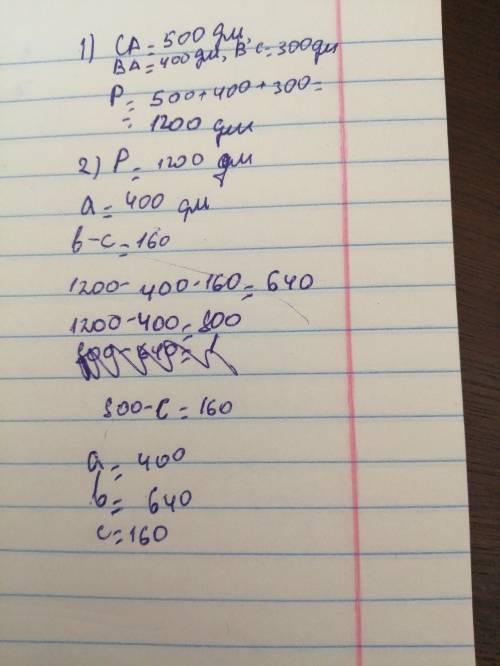 1) CA = 500 дм,
BA = 400 дм, BC = 300 дм
P = 500 + 400 + 300 =
= 1200 дм
2) P = 1200 дм
a = 400 дм
b - c = 160
1200 - 400 - 160 = 640
1200 - 400 = 800
800 - C = 160
a = 400
b = 640
c = 160